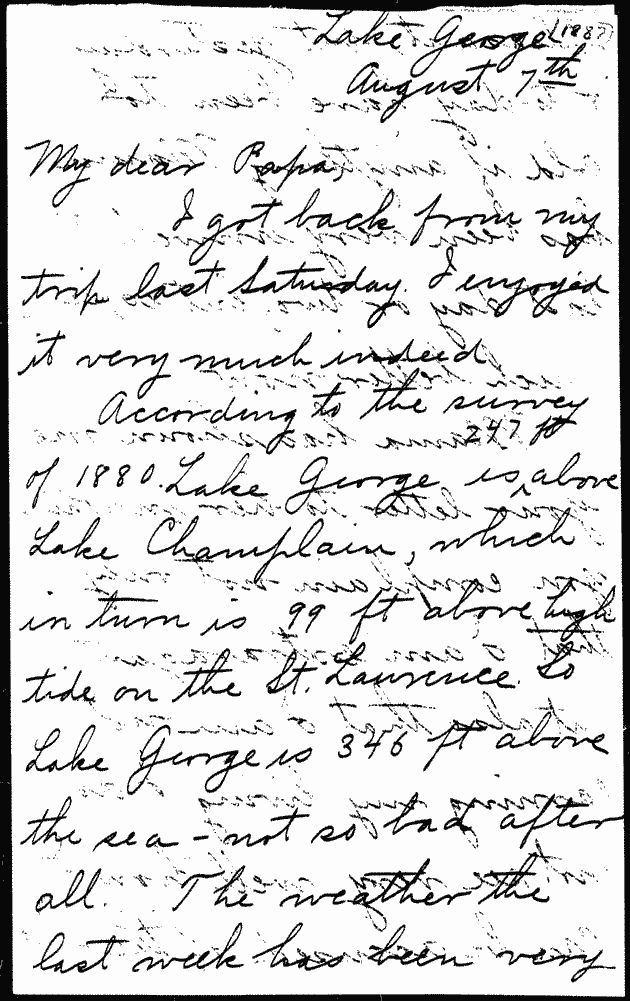 Lake George (1887)
August 7th
My dear Papa,
I got back from my
trip last Saturday. I enjoyed
it very much indeed.
According to the survey
247 ft
of 1880. Lake George is ‸ above
Lake Champlain, which
in turn is 99 ft above high
tide on the St. Lawrence. So
Lake George is 346 ft above
the sea - not so bad after
all. The weather the
last week has been very